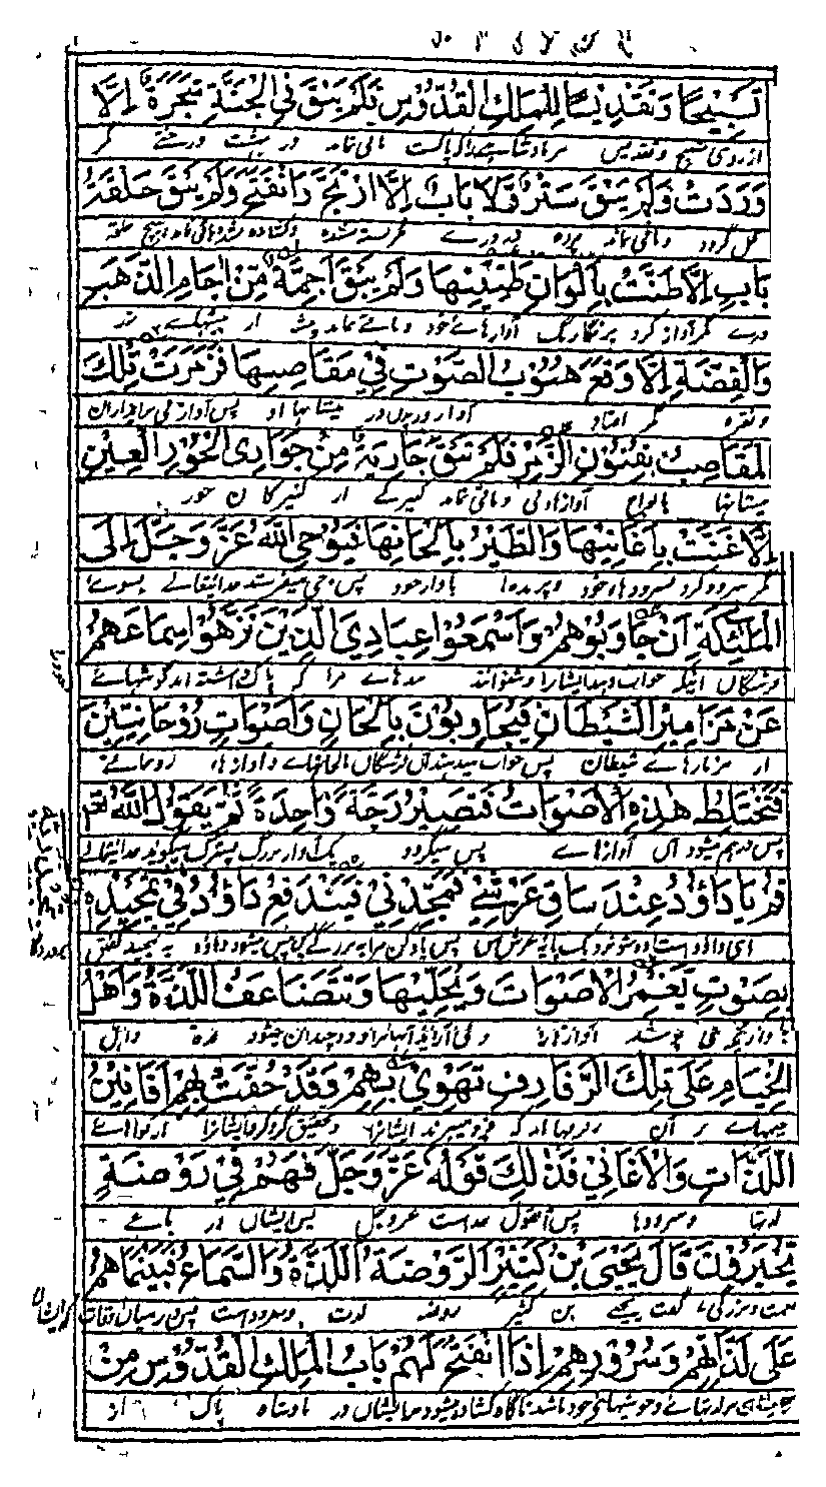 تَسْبِيْحًا وَتَقْدِيْسًا لِلْمَلِكِ الْقُدُّوْسِ فَلَمْ يَبْقَ فِي الْجَنَّةِ شَجَرَةٌ اِلَّا
ازروی تسبیح و تقدیس مر بادشاه پاکست باقی نماند در بهشت درختے مگر
وَرَدَتْ وَلَمْ يَبْقَ سِتْرٌ وَلَا بَابٌ اِلَّا ارْتَجَّ وَانْفَتَحَ وَلَمْ يَبْقَ حَلْقَةُ
گل گردد و باقی نماند پرده و نه درے مگر بسته شده و کشاده شد و باقی نماند هیچ حلقه
بَابٍ اِلَّا طَنَّتْ بِاَلْوَانِ طَنِيْنِهَا وَلَمْ يَبْقَ اَجَمَةٌ مِّنْ اٰجَامِ الذَّهَبِ
درے مگر آواز کرد برنگارنگ آوازهائے خود و باقے نماند بیشه از بیشهائے زر
وَالْفِضَّةِ اِلَّا وَقَعَ هُبُوْبُ الصَّوْتِ فِيْ مَقَاصِبِهَا فَزَمَرَتْ تِلْكَ
و نقره مگر افتاد آواز وزیدن در نیستانها او پس آواز نی
الْمَقَاصِبُ بِفُنُوْنِ الزَّمْرِ فَلَمْ تَبْقَ جَارِيَةٌ مِنْ جَوَارِى الْحُوْرِ الْعِيْنِ
نیستانها بانواع آوازهاونی و باقی نماند کنیزکے از کنیزکان حور
اِلَّا غَنَّتْ بِاَغَانِيْهَا وَالطَّيْرُ بِاَلْحَانِهَا فَيُوْحِي اللّٰهُ عَزَّ وَجَلَّ اِلَى
مگر سرود کرد بسرودهاء خود و پرندها باواز خود پس وحی میفرستد خدایتعالے بسوے
الْمَلٰئِكَةِ اَنْ جَاوِبُوْهُمْ وَاَسْمِعُوْا عِبَادِيَ الَّذِيْنَ نَزَّهُوْا سِمَاعَهُمْ
فرشتگان اینکه جواب دهید ایشانرا و شنوانند بندهاے مرا که پاک داشته اند گوشهاے
عَنْ مَزَامِيْرِ الشَّيْطَانِ فَيُجَاوِبُوْنَ بِاَلْحَانٍ وَاَصْوَاتٍ رُوْحَانِيِّيْنَ
از مزمارهائے شیطان پس جواب میدهند آن فرشتگان بالحانهاے و آوازهاء
فَتَخْتَلِطُ هٰذِهِ الْاَصْوَاتُ فَتَصِيْرُ رَجَّةً وَّاحِدَةً ثُمَّ يَقُوْلُ اللّٰهُ
پس بهم میشود آن آوازهاے پس میگردد یک آواز بزرگ پستر میگوید خدایتعالے
قُمْ يَا دَاوٗدُ عِنْدَ سَاقِ عَرْشِيْ فَمَجِّدْنِيْ فَيَنْدَفِعُ دَاوٗدُ فِيْ تَمْجِيْدِهٖ
ای داود بایست نزدیک پایه عرش من پس یاد کن مرا به بزرگے پس میشود داود به تمجید گفتن
بِصَوْتٍ يَغْمُرُ الْاَصْوَاتَ وَيُحَلِّيْهَا وَتَتَضَاعَفُ اللَّذَّةُ وَاَهْلُ
باوازیکه می پوشند آوازهارا و می آراید آنهارا و دوچندان میشود لذة و اهل
الْخِيَامِ عَلَى تِلْكَ الرَّفَارِفِ تَهْوِيْ بِهِمْ وَقَدْ حَفَّتْ بِهِمْ اَفَانِيْنُ
خیمهاے بر آن رفرفها اند که فرو میبرند ایشانرا و تحقیق گرد گرفت ایشانرا
اللَّذَّاتِ وَالْاَغَانِيْ فَذٰلِكَ قَوْلُهٗ عَزَّ وَجَلَّ فَهُمْ فِيْ رَوْضَةٍ
لذتها و سرودها پس آن قول خداست عزوجل پس ایشان در باغے
يُّحْبَرُوْنَ قَالَ يَحْيَى بْنُ كَثِيْرٍ الرَّوْضَةُ اللَّذَّةُ وَالسَّمَاعُ فَبَيْنَمَا هُمْ
گفت یحیی بن کثیر روضه لذت و سرود است پس درمیان اوقات که ایشان
عَلَى لَذَّاتِهِمْ وَسُرُوْرِهِمْ اِذَا انْفَتَحَ لَهُمْ بَابُ الْمَلِكِ الْقُدُّوْسِ مِنْ
لذتهائے و خوشیهائے خود باشند ناگاه کشاده میشود مر ایشان در بادشاه پاک از